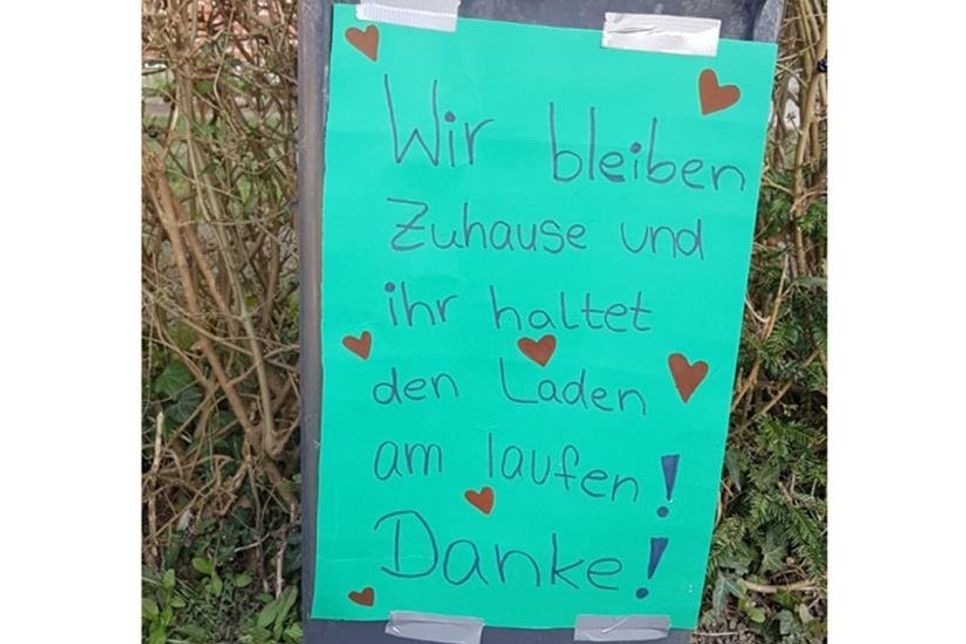 Wir bleiben
Zuhause und
ihr haltet
den Laden
am laufen!
Danke!